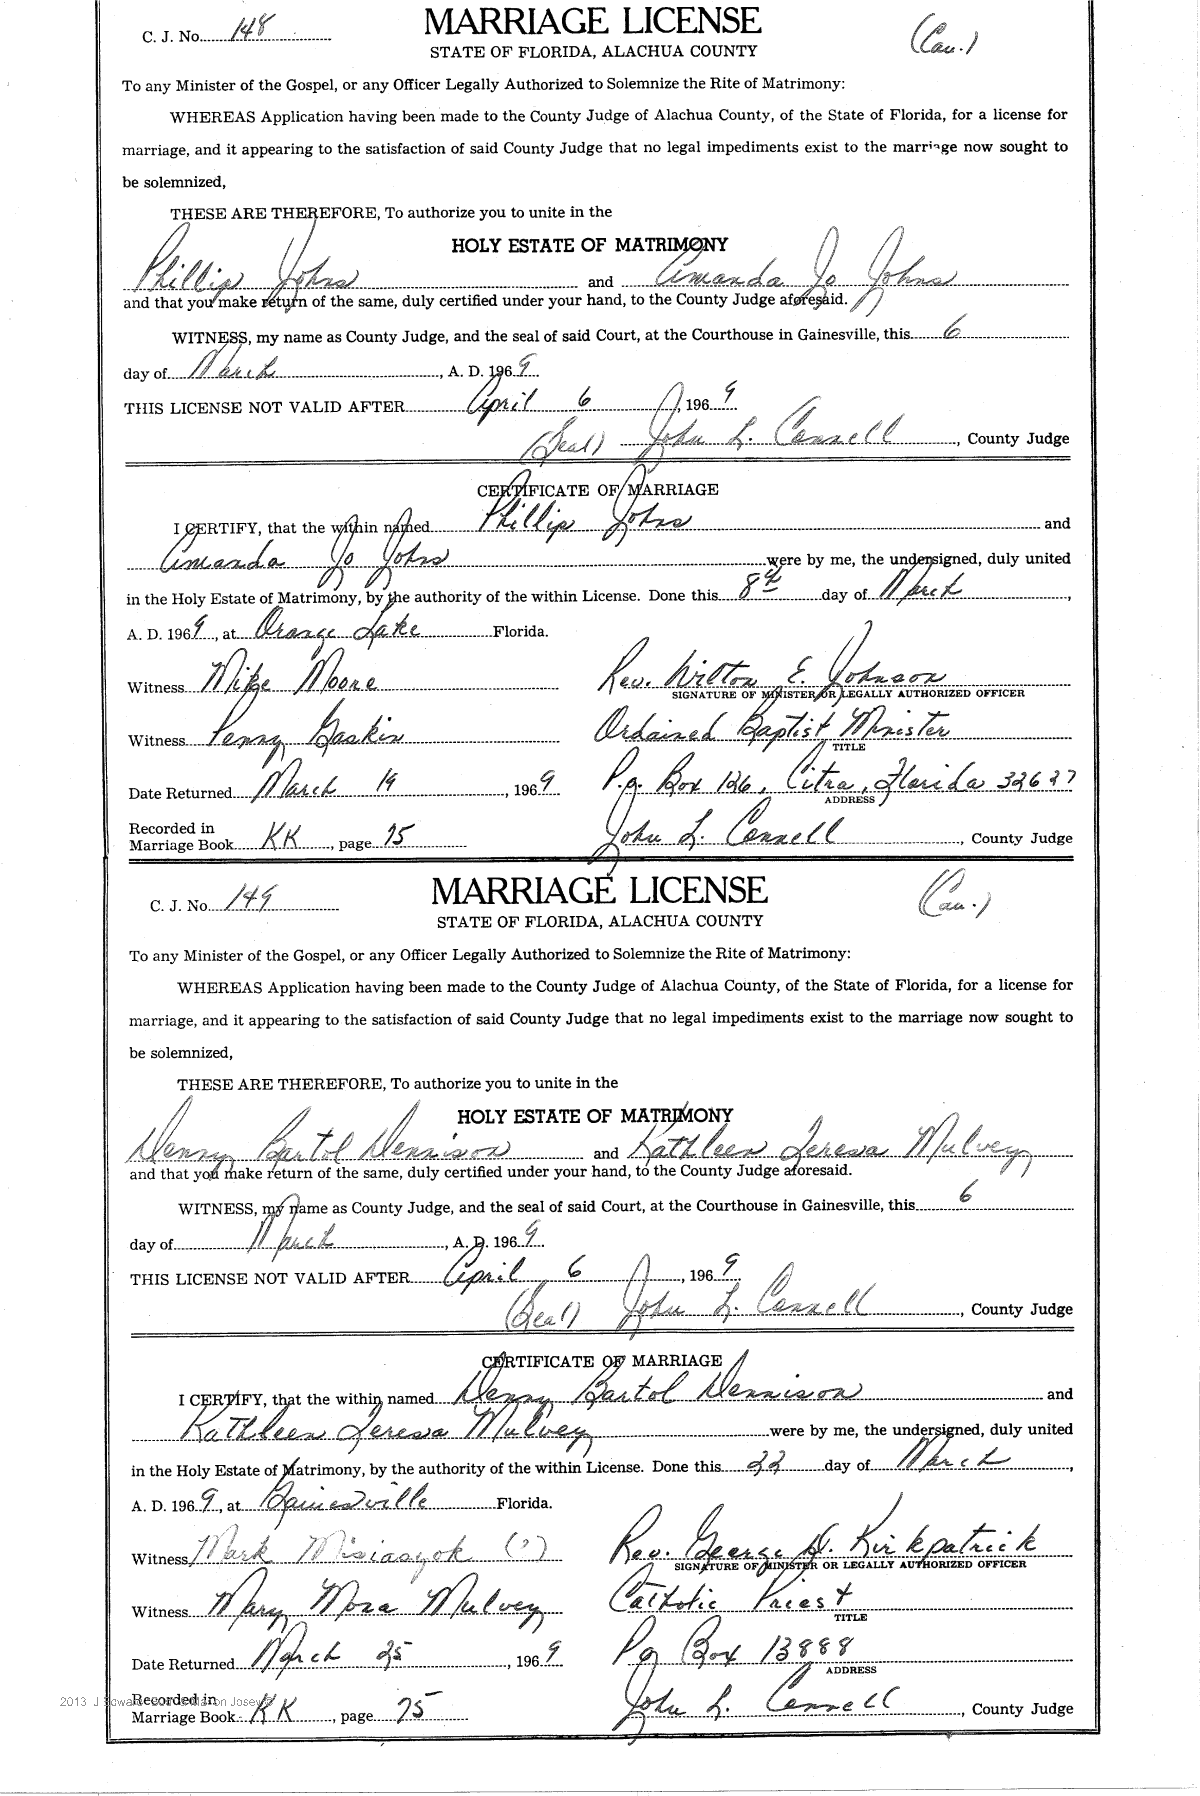 C. J. No. 148
MARRIAGE LICENSE
(Cau.)
STATE OF FLORIDA, ALACHUA COUNTY
To any Minister of the Gospel, or any Officer Legally Authorized to Solemnize the Rite of Matrimony:
WHEREAS Application having been made to the County Judge of Alachua County, of the State of Florida, for a license for
marriage, and it appearing to the satisfaction of said County Judge that no legal impediments exist to the marriage now sought to
be solemnized,
THESE ARE THEREFORE, To authorize you to unite in the
HOLY ESTATE OF MATRIMONY
Phillip Johns and Amanda Jo Johns
and that you make return of the same, duly certified under your hand, to the County Judge aforesaid.
WITNESS, my name as County Judge, and the seal of said Court, at the Courthouse in Gainesville, this 6
day of March, A. D. 1969.
THIS LICENSE NOT VALID AFTER April 6, 1969
(Seal) John L. Connell, County Judge
CERTIFICATE OF MARRIAGE
I CERTIFY, that the within named Phillip Johns and
Amanda Jo Johns were by me, the undersigned, duly united
in the Holy Estate of Matrimony, by the authority of the within License. Done this 8th day of March,
A. D. 1969, at Orange Lake Florida.
Witness Mike Moore Rev. Wilton E. Johnson
SIGNATURE OF MINISTER OR LEGALLY AUTHORIZED OFFICER
Witness Penny Gaskin Ordained Baptist Minister
TITLE
Date Returned March 19, 1969 P.O. Box 126, Citra, Florida 32627
ADDRESS
Recorded in
Marriage Book KK, page 75 John L. Connell, County Judge
C. J. No. 149
MARRIAGE LICENSE
(Cau.)
STATE OF FLORIDA, ALACHUA COUNTY
To any Minister of the Gospel, or any Officer Legally Authorized to Solemnize the Rite of Matrimony:
WHEREAS Application having been made to the County Judge of Alachua County, of the State of Florida, for a license for
marriage, and it appearing to the satisfaction of said County Judge that no legal impediments exist to the marriage now sought to
be solemnized,
THESE ARE THEREFORE, To authorize you to unite in the
HOLY ESTATE OF MATRIMONY
Denny Bartol Dennison and Kathleen Teresa Mulvey
and that you make return of the same, duly certified under your hand, to the County Judge aforesaid.
WITNESS, my name as County Judge, and the seal of said Court, at the Courthouse in Gainesville, this 6
day of March, A. D. 1969.
THIS LICENSE NOT VALID AFTER April 6, 1969
(Seal) John L. Connell, County Judge
CERTIFICATE OF MARRIAGE
I CERTIFY, that the within named Denny Bartol Dennison and
Kathleen Teresa Mulvey were by me, the undersigned, duly united
in the Holy Estate of Matrimony, by the authority of the within License. Done this 22 day of March,
A. D. 1969, at Gainesville Florida.
Witness Mark Misiasyok (?) Rev. George D. Kirkpatrick
SIGNATURE OF MINISTER OR LEGALLY AUTHORIZED OFFICER
Witness Mary Mona Mulvey Catholic Priest
TITLE
Date Returned March 25, 1969 PO Box 13888
ADDRESS
Recorded in
Marriage Book KK, page 75 John L. Connell, County Judge
2013 J